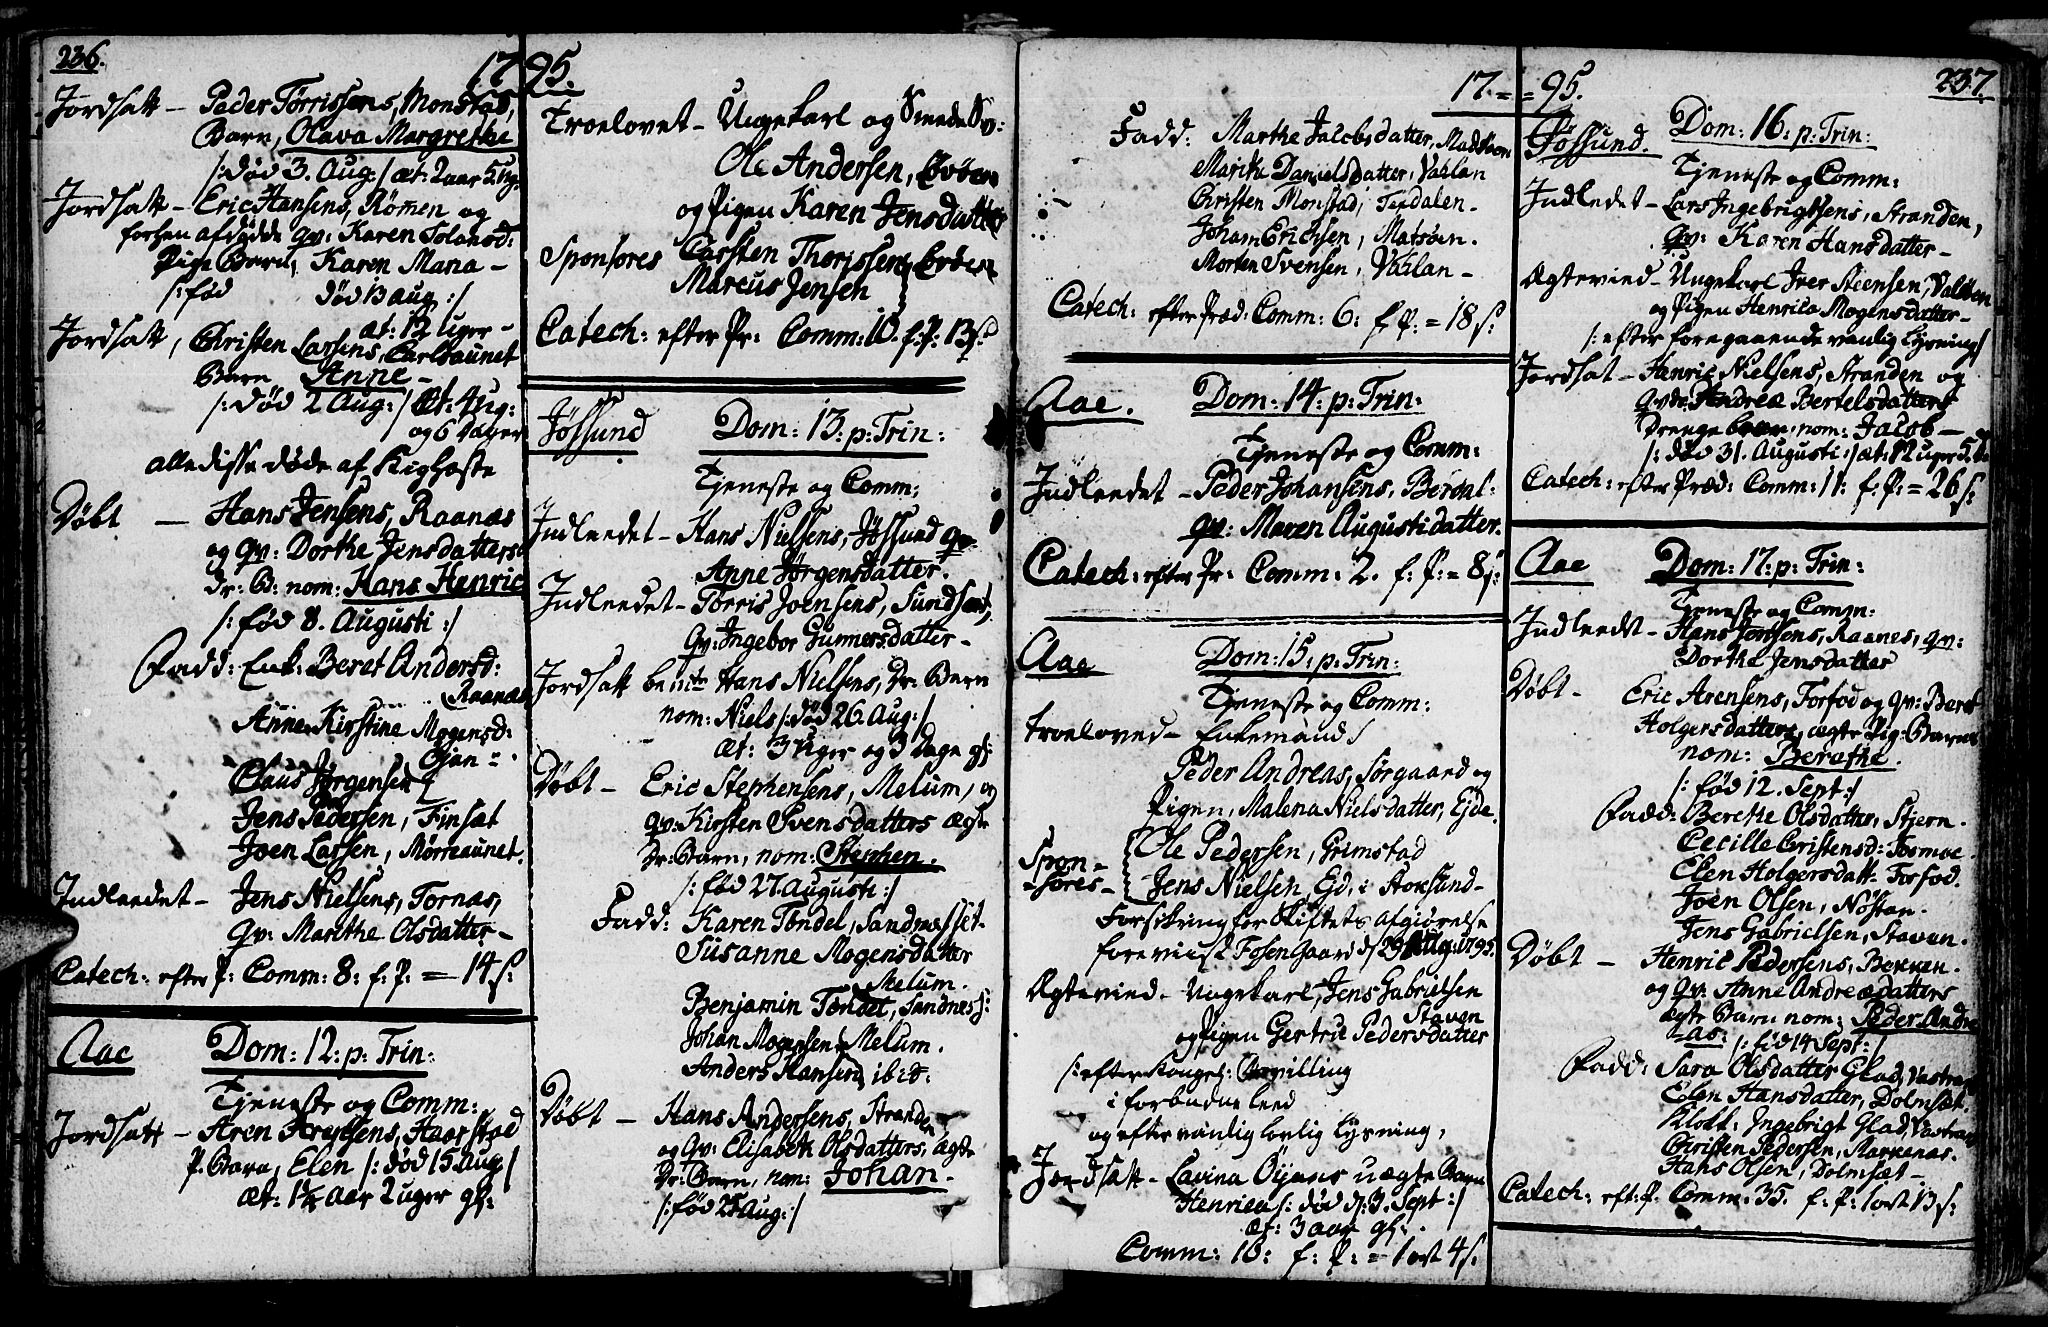 236.
1795.
Jordsatt - Peder Tørrissens, Monstad,
Barn, Olava Margrethe
/: død 3. Aug: / æt: 2 aar 5 ug.
Jordsatt - Eric Hansens, Rømen og
forhen afdøde qv: Karen Tolansd:
Pige Barn, Karen Maria -
/: fød død 13 aug :/
æt: 12 uger -
Jordsatt, Christen Larsens, Carlsaunet
Barn Anne -
/: død 2 Aug: / Æt: 4 ug:
og 6 Dager
alle disse døde af Kighoste
Døbt - Hans Jensens, Raanæs
og qv: Dorthe Jensdatters
Dr: B: nom: Hans Henric
/: fød 8. Augusti :/
Fadd: Enk: Beret Andersd:
Raanæs
Anne Kirstine Mogensd:
Øjan
Claus Jørgensen
Jens Pedersen, Finsæt
Joen Larsen, Mørreaunet.
Indleedet - Jens Nielsens, Tornæs,
Qv: Marithe Olsdatter -
Catech: efter P: Comm: 8: f: P: = 14 s:
Aae Dom: 12: p: Trin:
Tjeneste og Comm:
Jordsatt - Aren Arentsens, Haarstad
P. Barn, Elen /: død 15 Aug /
æt: 1½ Aar 2 uger gl:
Troelovet - Ungekarl og Smede Sv:
Ole Andersen,
og Pigen Karen Jensdatter
Sponsores Carsten Thorissen
Marcus Jensen
Catech: efter Pr: Comm: 10. f: P: 13 s
Jøssund Dom: 13: p: Trin:
Tjeneste og Comm:
Indleedet - Hans Nielsens, Jøssund qv
Anne Jørgensdatter.
Indleedet - Torris Joensens, Sundsæt,
Qv: Ingebor Gunnersdatter -
Jordsatt bem:te Hans Nielsens, Dr: Barn
nom: Niels /: død 26. Aug: /
Æt: 3 uger og 3 Dage gl:
Døbt - Eric Stephensens, Melum, og
qv: Kirsten Svensdatters ægte
Dr: Barn, nom: Stephen.
/: fød 27. Augusti :/
Fadd: Karen Tøndel, Sandnesset.
Susanne Mogensdatter
Melum.
Benjamin Tøndel, Sandness:
Johan Mogensen Melum.
Anders Hansen, ibid:
Døbt - Hans Andersens, Stranden
og Qv: Elisabeth Olsdatters, ægte
Dr: Barn, nom: Johan -
/: fød 25 Aug: /
17 = = 95.
237
Fadd: Marthe Jacobsdatter, Madsøen
Marithe Danielsdatter, Vahlan
Christen Monstad,
Joham Erichsen, Matsøen.
Morten Svensen, Vahlan -
Catech: efter Præd: Comm: 6: f: P: = 18 s:
Aae. Dom: 14: p: Trin:
Tjeneste og Comm:
Indleedet - Peder Johansens, Berdal:
qv: Maren Augustidatter.
Catech: efter Pr: Comm: 2. f: P: = 8 s:
Aae Dom: 15: p: Trin:
Tjeneste og Comm:
Troeloved - Enkemand /
Peder Andreas, Sørgaard og
Pigen, Malena Nielsdatter, Ejde.
Spon= Ole Pedersen, Grimstad
=sores - Jens Nielsen, Ejd, i Stoksund -
Forsikring for Skiftets Afgiørelse
foreviist Fosen Gaard d 29 Aug: 1795.
Ægteviед - Ungekarl, Jens Gabrielsen
Staven
og Pigen Gertru Pedersdatter
/: efter Kongel: Bevilling
i forbudne leed
og efter vanlig lovlig Lysning,
Jordsatt - Lavina Øijens uægte Barn
Henrica /: død d: 3. Sept :/
æt: 3 aar gl: .
Comm: 10: f: P: = 1 ort 4 s:
Jøssund. Dom: 16: p: Trin:
Tjeneste og Comm:
Indledet - Lars Ingebrigtsens, Stranden,
qv: Karen Hansdatter -
Ægteviед - Ungekarl Iver Steensen, Valsøen
og Pigen Henrica Mogensdatter -
/: efter foregaaende vanlig Lysning /
Jordsat - Henric Nielsens, Stranden og
qvde: Andrea Bertelsdatters
Drenge barn, nom: Jacob -
/: død 31. Augusti :/ æt: 12 uger 5 d.
Catech: efter Præd: Comm: 11: f: P: = 26 s:
Aae Dom: 17: p: Trin:
Tjeneste og Comm:
Indleedt - Hans Jenssens, Raanes, qv:
Dorthe Jensdatter
Døbt - Eric Arensens, Forfod og qv: Beret
Holgersdatters, ægte Pig: Barn
nom: Berethe.
/: fød 12. Sept: /
Fadd: Berethe Olsdatter, Stjern.
Cecille Christensd: Fosmoe.
Elen Holgersdatt: Forfod.
Joen Olsen, Nøstan.
Jens Gabrielsen, Staven.
Døbt - Henric Pedersens, Bekken.
og Qv: Anne Andreædatters
ægte Barn nom: Peder Andre
as: /: fød 14 Sept: /
Fadd: Sara Olsdatter Glad, Vastran
Elen Hansdatter, Dolmsæt.
Klokk: Ingebrigt Glad, Vastran
Christen Pedersen, Karkenæs.
Hans Olsen, Dolmsæt -
Catech: eft: P. Comm: 35. f: P: 1 ort 13 s: